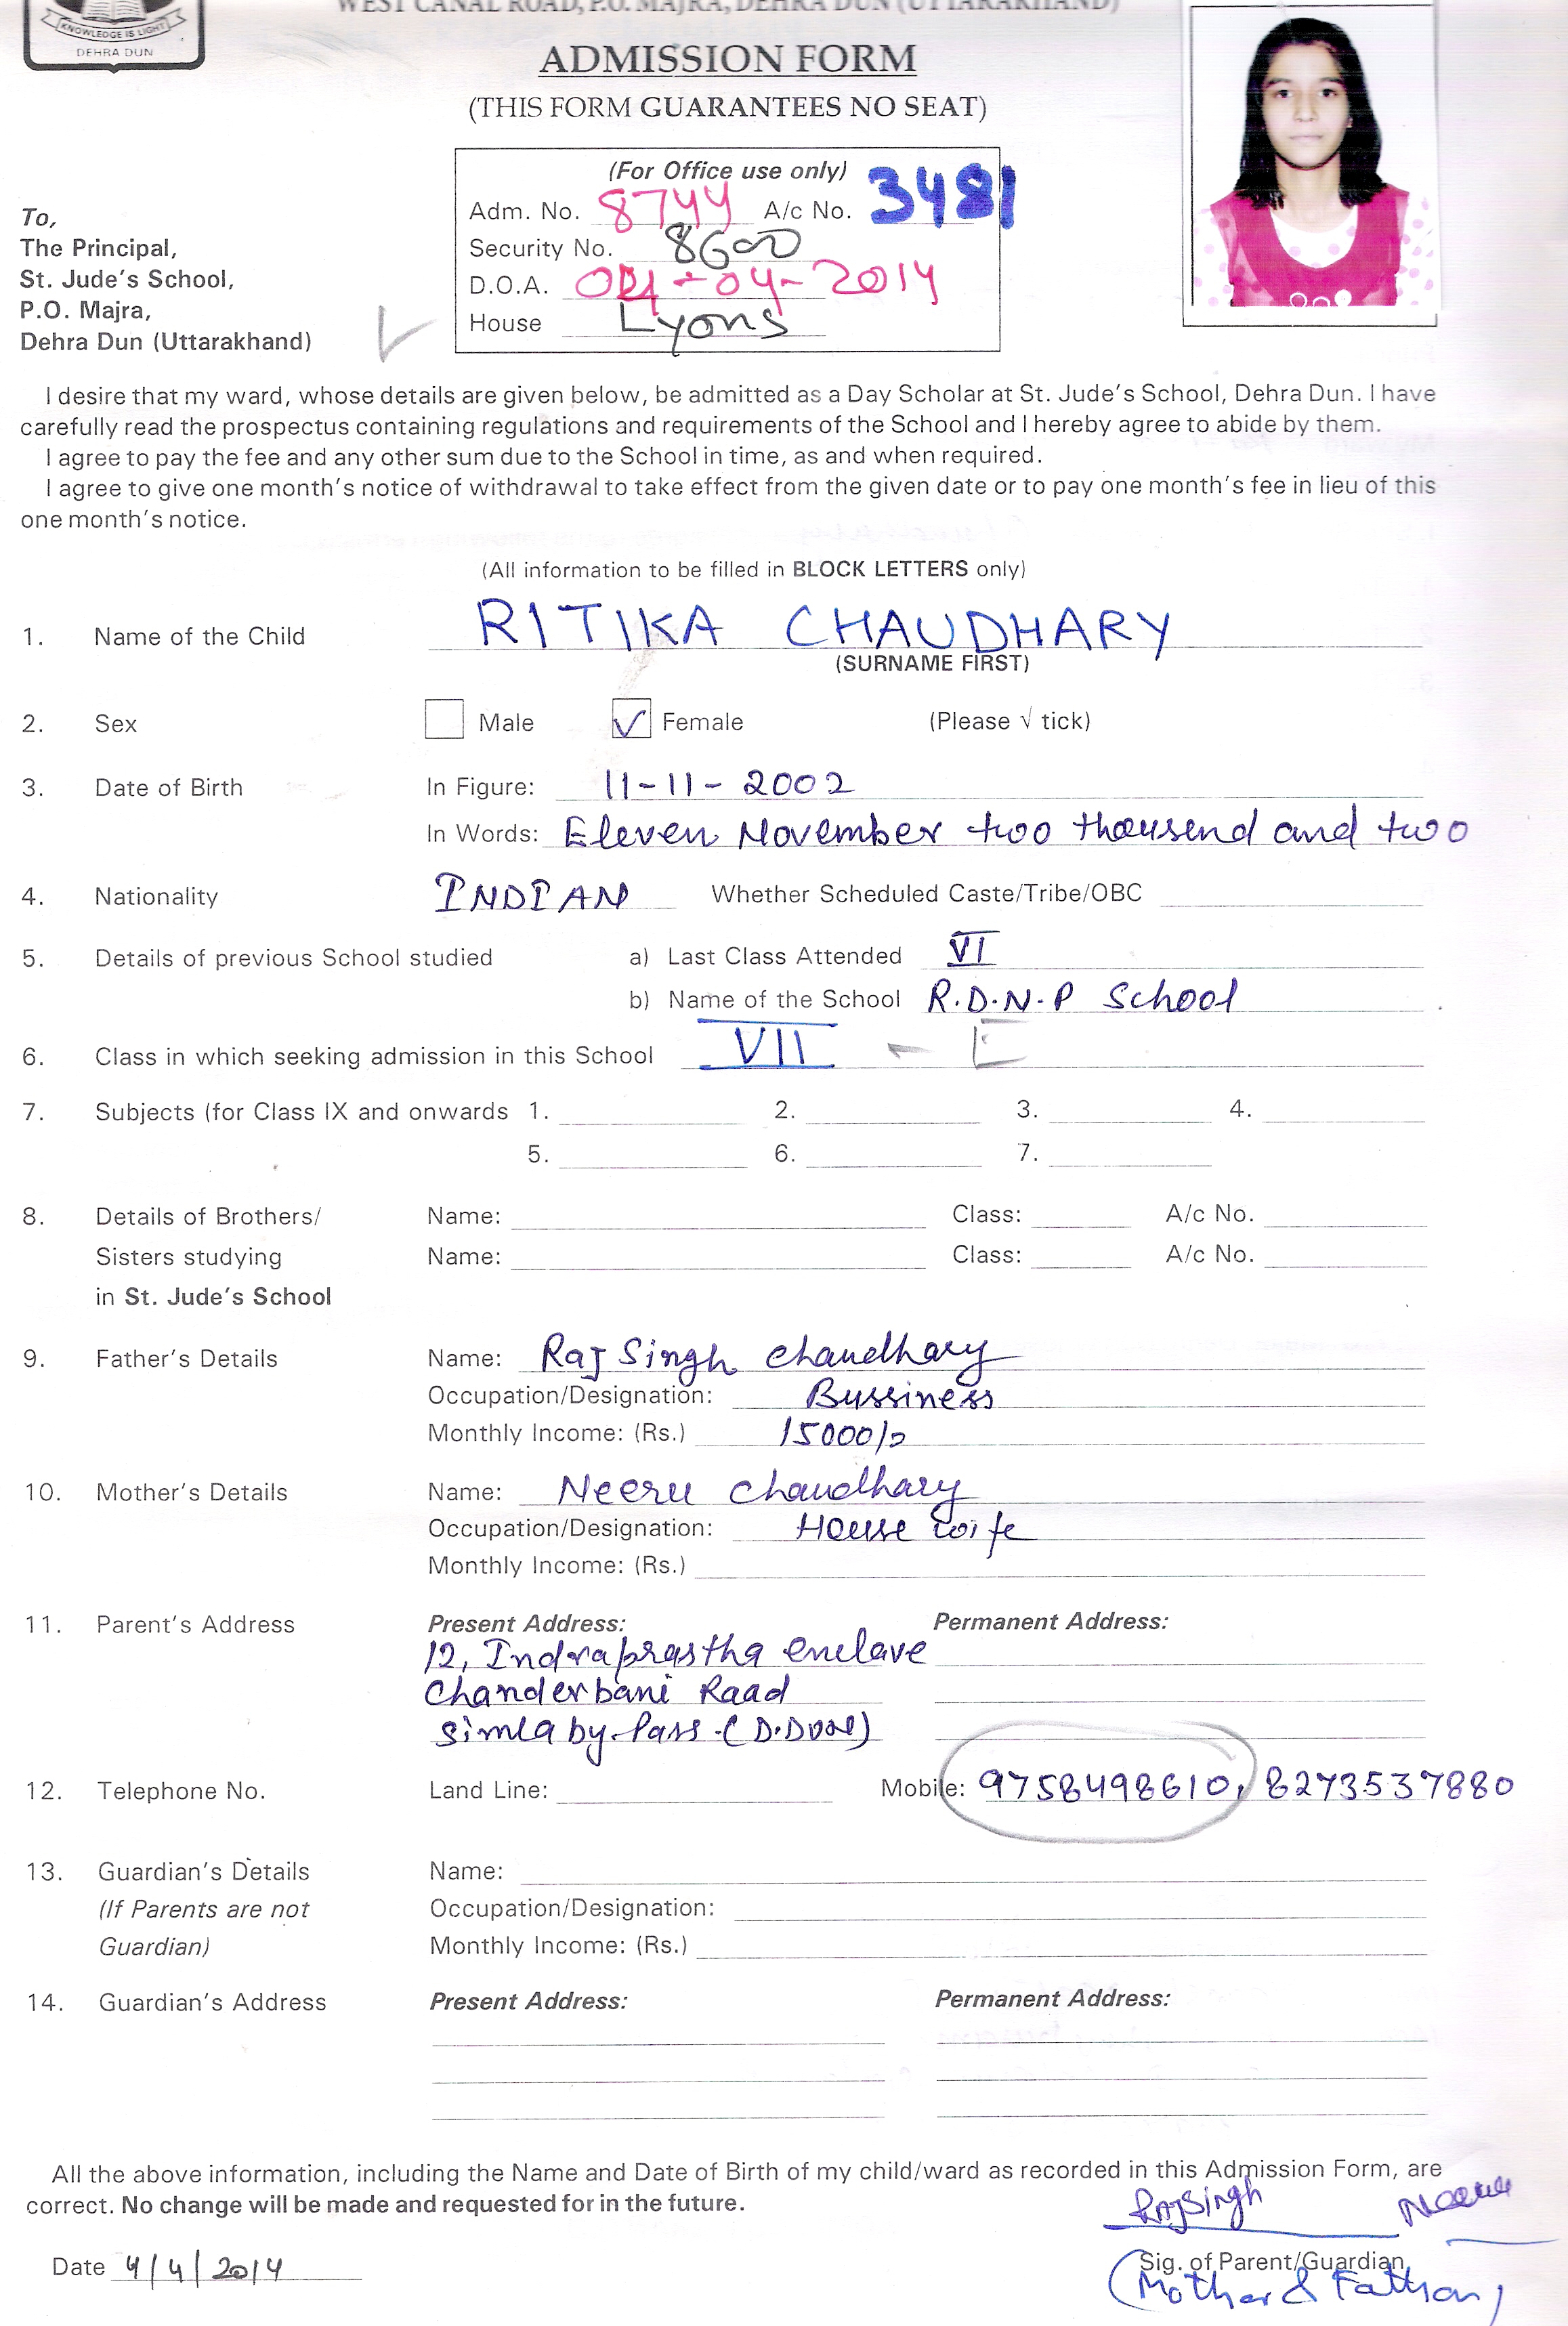 WEST CANAL ROAD, P.O. MAJRA, DEHRA DUN (UTTARAKHAND)
KNOWLEDGE IS LIGHT
DEHRA DUN
ADMISSION FORM
(THIS FORM GUARANTEES NO SEAT)
(For Office use only)
Adm. No. 8744 A/c No. 3481
Security No. 8600
D.O.A. 04-04-2014
House Lyons
To,
The Principal,
St. Jude's School,
P.O. Majra,
Dehra Dun (Uttarakhand)
I desire that my ward, whose details are given below, be admitted as a Day Scholar at St. Jude's School, Dehra Dun. I have
carefully read the prospectus containing regulations and requirements of the School and I hereby agree to abide by them.
I agree to pay the fee and any other sum due to the School in time, as and when required.
I agree to give one month's notice of withdrawal to take effect from the given date or to pay one month's fee in lieu of this
one month's notice.
(All information to be filled in BLOCK LETTERS only)
1. Name of the Child RITIKA CHAUDHARY
(SURNAME FIRST)
2. Sex Male ✓ Female (Please √ tick)
3. Date of Birth In Figure: 11-11-2002
In Words: Eleven November two thousend and two
4. Nationality INDIAN Whether Scheduled Caste/Tribe/OBC
5. Details of previous School studied a) Last Class Attended VI
b) Name of the School R.D.N.P School
6. Class in which seeking admission in this School VII - E
7. Subjects (for Class IX and onwards 1. 2. 3. 4.
5. 6. 7.
8. Details of Brothers/ Name: Class: A/c No.
Sisters studying Name: Class: A/c No.
in St. Jude's School
9. Father's Details Name: Raj Singh Chaudhary
Occupation/Designation: Bussiness
Monthly Income: (Rs.) 15000/-
10. Mother's Details Name: Neeru Chaudhary
Occupation/Designation: House wife
Monthly Income: (Rs.)
11. Parent's Address Present Address: Permanent Address:
12, Indraprastha enclave
Chanderbani Raad
Simla by-Pass-(D.DUN)
12. Telephone No. Land Line: Mobile: 9758498610, 8273537880
13. Guardian's Details Name:
(If Parents are not Occupation/Designation:
Guardian) Monthly Income: (Rs.)
14. Guardian's Address Present Address: Permanent Address:
All the above information, including the Name and Date of Birth of my child/ward as recorded in this Admission Form, are
correct. No change will be made and requested for in the future.
RajSingh Neeru
Date 4/4/2014 Sig. of Parent/Guardian
(Mother & Father)